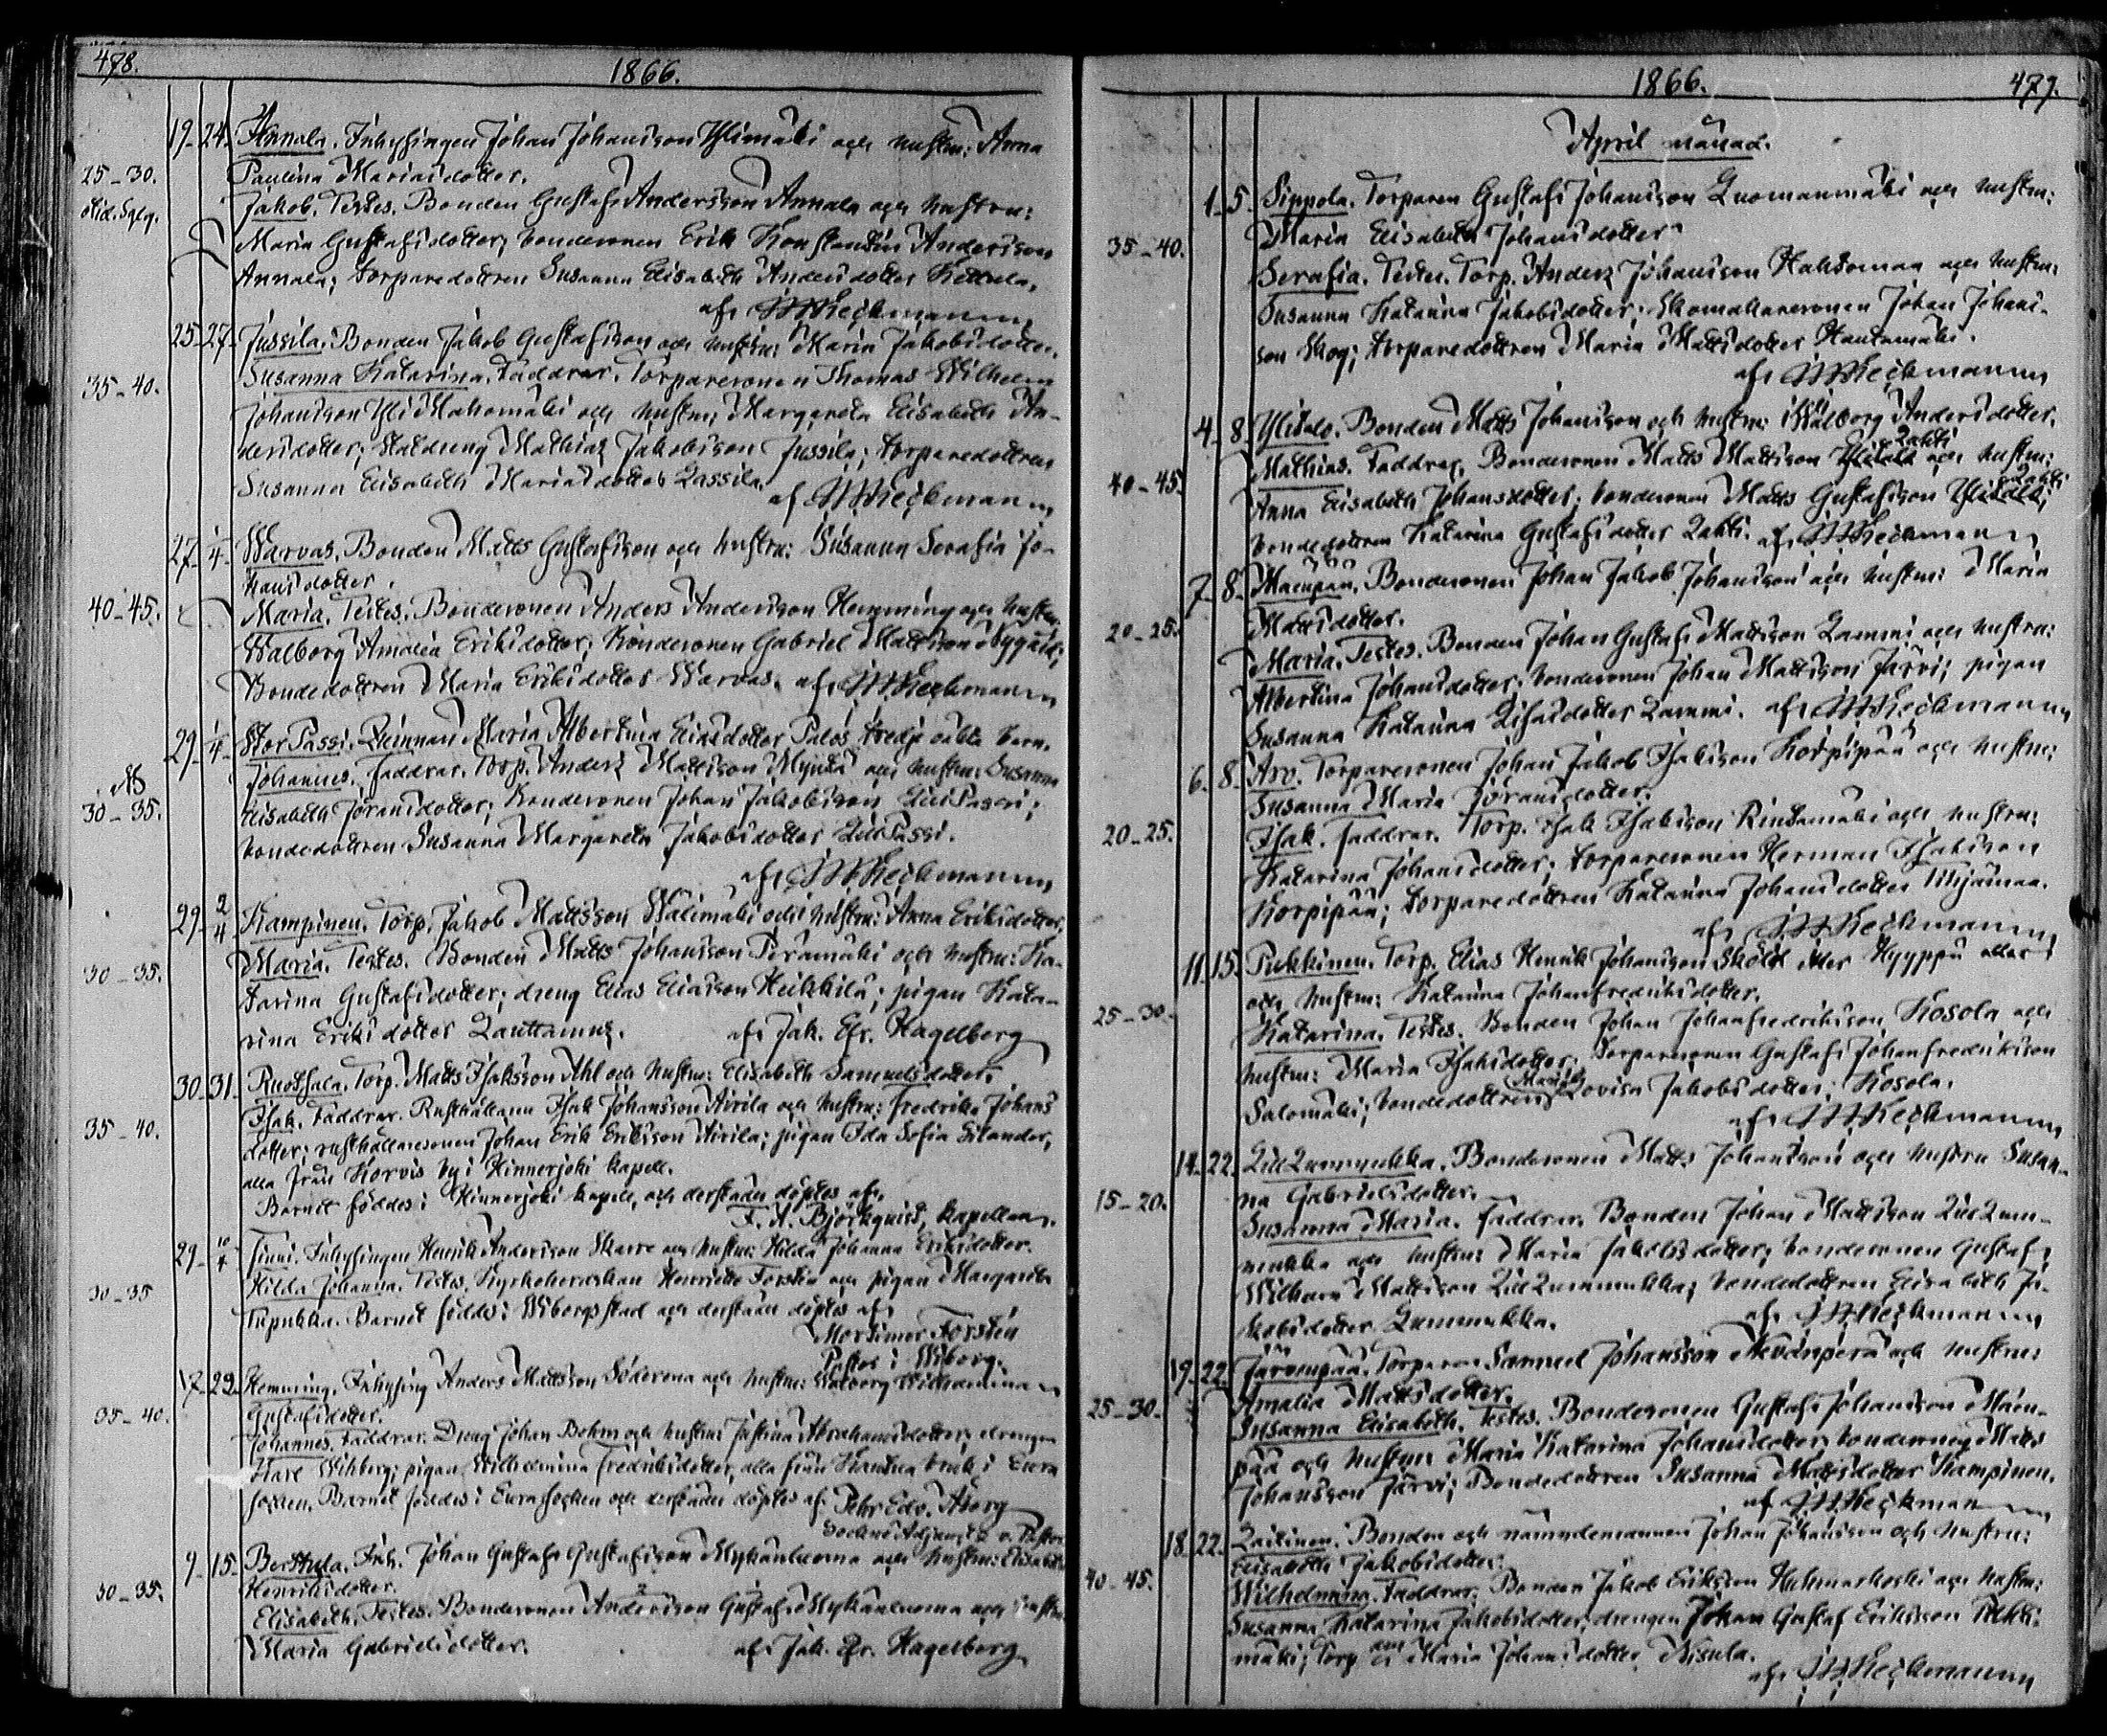 478.
1866.
19. 24. Annala. Inhysingen Johan Johansson Ylimäki och hustru: Anna
25-30. Paulina Mariasdotter.
Jakob. Testes. Bonden Gustaf Andersson Annala och hustru:
Maria Gustafsdotter; bondesonen Erik Konstantin Andersson
Annala; torparedottren Susanna Elisabeth Andersdotter
af
25. 27. Jussila. Bonden Jakob Gustafsson och hustru: Maria Jakobsdotter.
35-40. Susanna Katarina. Faddrar. Torparesonen Thomas Wilhelm
Johansson och hustru Margareta Elisabeth An-
dersdotter; Matthias Jakobsson Jussila; torparedottren
Susanna Elisabeth Mariasdotter Lassila.
af
27. 1/4 Warvas. Bonden Matts Gustafsson och hustru: Susanna Serafia Jo-
hansdotter.
40-45. Maria. Testes. Bondesonen Anders Andersson Hemming och hustru
Walborg Amalia Eriksdotter; bondesonen Gabriel Mattsson Nygård;
Bondedottren Maria Eriksdotter Warvas. af
29. 1/4 StorPassi. Qvinnan Maria Albertina Eliasdotter Palos tredje oäkta barn.
30-35. Johannes. Faddrar. Torp. Anders Mattsson och hustru: Susanna
Elisabeth Göransdotter; bondesonen Johan Jakobsson LillPassi;
bondedottren Susanna Margareta Jakobsdotter LillPassi.
af
29. 2/4 Kampinen. Torp. Jakob Mattsson Wälimäki och hustru: Anna Eriksdotter.
30-35. Maria. Testes. Bonden Matts Johansson Perämäki och hustru: Ka-
tarina Gustafsdotter; dreng Elias Eliasson Heikkilä; pigan Kata-
rina Eriksdotter Lauttamus. af Jak. Efr. Hagelberg
30. 31. Ruotsala. Torp. Matts Isaksson Ahl och hustru: Elisabeth Samuelsdotter.
35-40. Isak. Faddrar. Rusthållaren Isak Johansson Airila och hustru: Fredrika Johans
dotter; rusthållaresonen Johan Erik Eriksson Airila; pigan Ida Sofia Silander,
alla från Korvis by i Hinnerjoki kapell.
Barnet föddes i Hinnerjoki kapell, och derstädes döptes af.
F. A. Björkquist, kapellan.
29. 10/4 Finni. Inhysingen Henrik Andersson Skarre och hustru: Hilda Johanna Eriksdotter.
30-35 Hilda Johanna. Testes. Kyrkoherdskan Henriette Forstén och pigan Margareta
Barnet föddes i Wiborgs stad och derstädes döptes af
Mortimer Forstén
Pastor i Wiborg.
17. 22. Hemming. Inhysing Anders Mattsson Söderena och hustru: Walborg Wilhelmina
35-40. Gustafsdotter.
Johannes. Faddrar. Dreng Johan Bohm och hustru Justina Abrahamsdotter; drengen
Karl Wihberg; pigan Wilhelmina Fredriksdotter, alla från Kauttua bruk i Eura
socken. Barnet föddes i Eura socken och derstädes döptes af Petr. Edv. Åberg
Sockne Adjunct & v. Pastor
9. 15. Berttula. Inh. Johan Gustaf Gustafsson och hustru: Elisabeth
30-35. Henriksdotter.
Elisabeth. Testes. Bondesonen Andersson Gustaf och hustru
Maria Gabrielsdotter. af Jak. Efr. Hagelberg
1866.
479.
April månad.
1. 5. Sippola. Torparen Gustaf Johansson Luomanmäki och hustru:
35-40. Maria Elisabeth Johansdotter
Serafia. Testes. Torp. Anders Johansson Hahdomaa och hustru
Susanna Katarina Jakobsdotter; skomakaresonen Johan Johans-
son Skog; torparedottren Maria Mattsdotter Hautamäki.
af
4. 8. Ylitalo. Bonden Matts Johansson och hustru: Walborg Andersdotter.
40-45. Mathias. Faddrar. Bondesonen Matts Mattsson Ylitalo Lahti och hustru:
Anna Elisabeth Johansdotter; bondesonen Matts Gustafsson Ylitalo;
bondedottren Katarina Gustafsdotter Lahti. af
7. 8. Mäenpää. Bondesonen Johan Jakob Johansson och hustru: Maria
20-25. Mattsdotter.
Maria. Testes. Bonden Johan Gustaf Mattsson Lammi och hustru:
Albertina Johansdotter; bondesonen Johan Mattsson Järvi; pigan
Susanna Katarina Lisasdotter Lammi. af
6. 8. Arv. Torparesonen Johan Jakob Isaksson Korpipää och hustru:
Susanna Maria Göransdotter.
20-25. Isak. Faddrar. Torp. Isak Isaksson Rintamäki och hustru:
Katarina Johansdotter; torparesonen Herman Isaksson
Korpipää; torparedottren Katarina Johansdotter
af
11. 15. Pukkinen. Torp. Elias Henrik Johansson Sköld eller Hyyppä
och hustru: Katarina Johanfredriksdotter.
25-30. Katarina. Testes. Bonden Johan Johanfredriksson Kosola och
hustru: Maria Isaksdotter; torparesonen Gustaf Johanfredriksson
Salomäki; bondedottren Maria Lovisa Jakobsdotter Kosola.
af
14. 22. LillLummukka. Bondesonen Matts Johansson och hustru Susan-
15-20. na Gabrielsdotter.
Susanna Maria. Faddrar. Bonden Johan Mattsson LillLum-
mukka och hustru: Maria Jakobsdotter; bondesonen Gustaf
Wilhelm Mattsson LillLummukka; bondedottren Elisabeth Ja-
kobsdotter Lummukka. af
19. 22. Järvenpää. Torparen Samuel Johansson Nevanperä och hustru:
25-30. Amalia Mattsdotter.
Susanna Elisabeth. Testes. Bondesonen Gustaf Johansson Mäen-
pää och hustru Maria Katarina Johansdotter; bondesonen Matts
Johansson Järvi; Bondedottren Susanna Mattsdotter Kampinen.
af
18. 22. Laitinen. Bonden och nämndemannen Johan Johansson och hustru:
40-45. Elisabeth Jakobsdotter.
Wilhelmina. Faddrar. Bonden Jakob Eriksson Huhmarkoski och hustru:
Susanna Katarina Jakobsdotter; drengen Johan Gustaf Eriksson
mäki; Torp Maria Johansdotter Nisula.
af